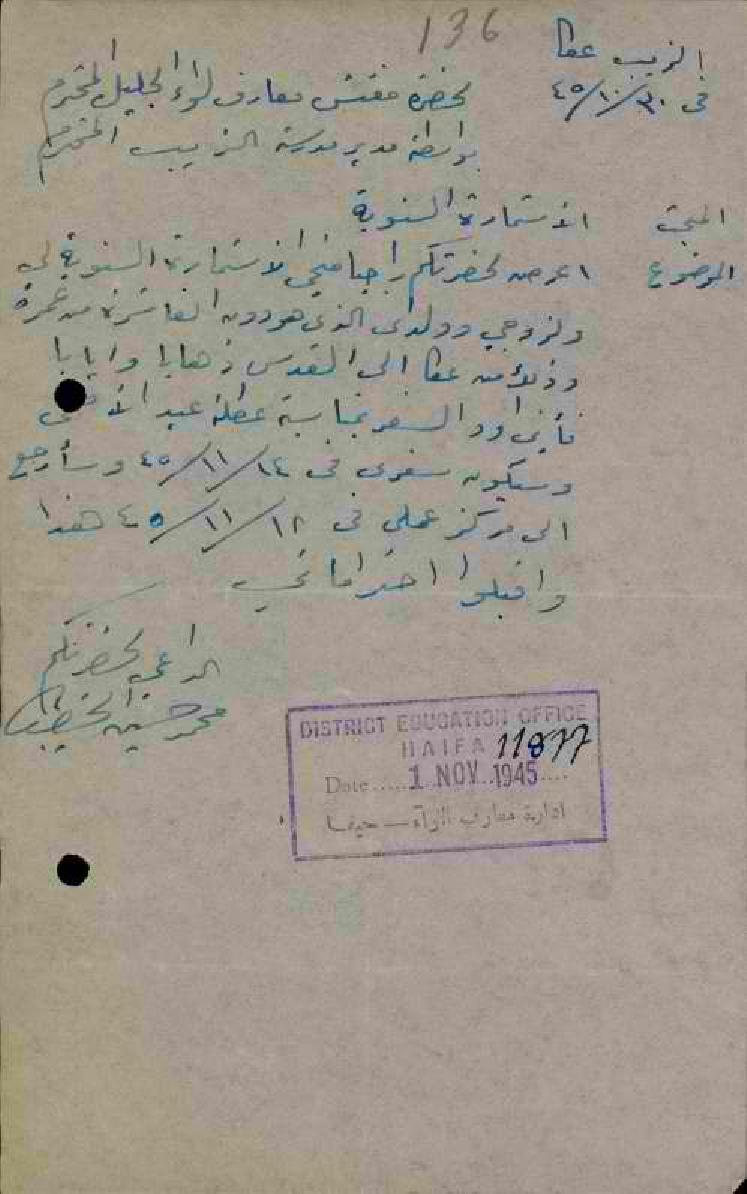 136
الزيب عكا
في ٣٠/١٠/٤٥
لحضرة مفتش معارف لواء الجليل المحترم
بواسطة مدير مدرسة الزيب المحترم
المبحث الاستمارة السنوية
الموضوع اعرض لحضرتكم راجيا منحي الاستمارة السنوية لي
ولزوجي وولدي الذي هو دون العاشرة من عمره
وذلك من عكا الى القدس ذهابا وايابا
فأني اود السفر بمناسبة عطلة عيد الأضحى
وسيكون سفري في ١٤/١١/٤٥ وسأرجع
الى مركز عملي في ١٨/١١/٤٥ هذا
واقبلوا احتراماتي
الداعي لحضرتكم
محمد حسين الخطيب
DISTRICT EDUCATION OFFICE
HAIFA 11877
Date ..... 1 NOV. 1945 ....
ادارة معارف اللوآء — حيفا